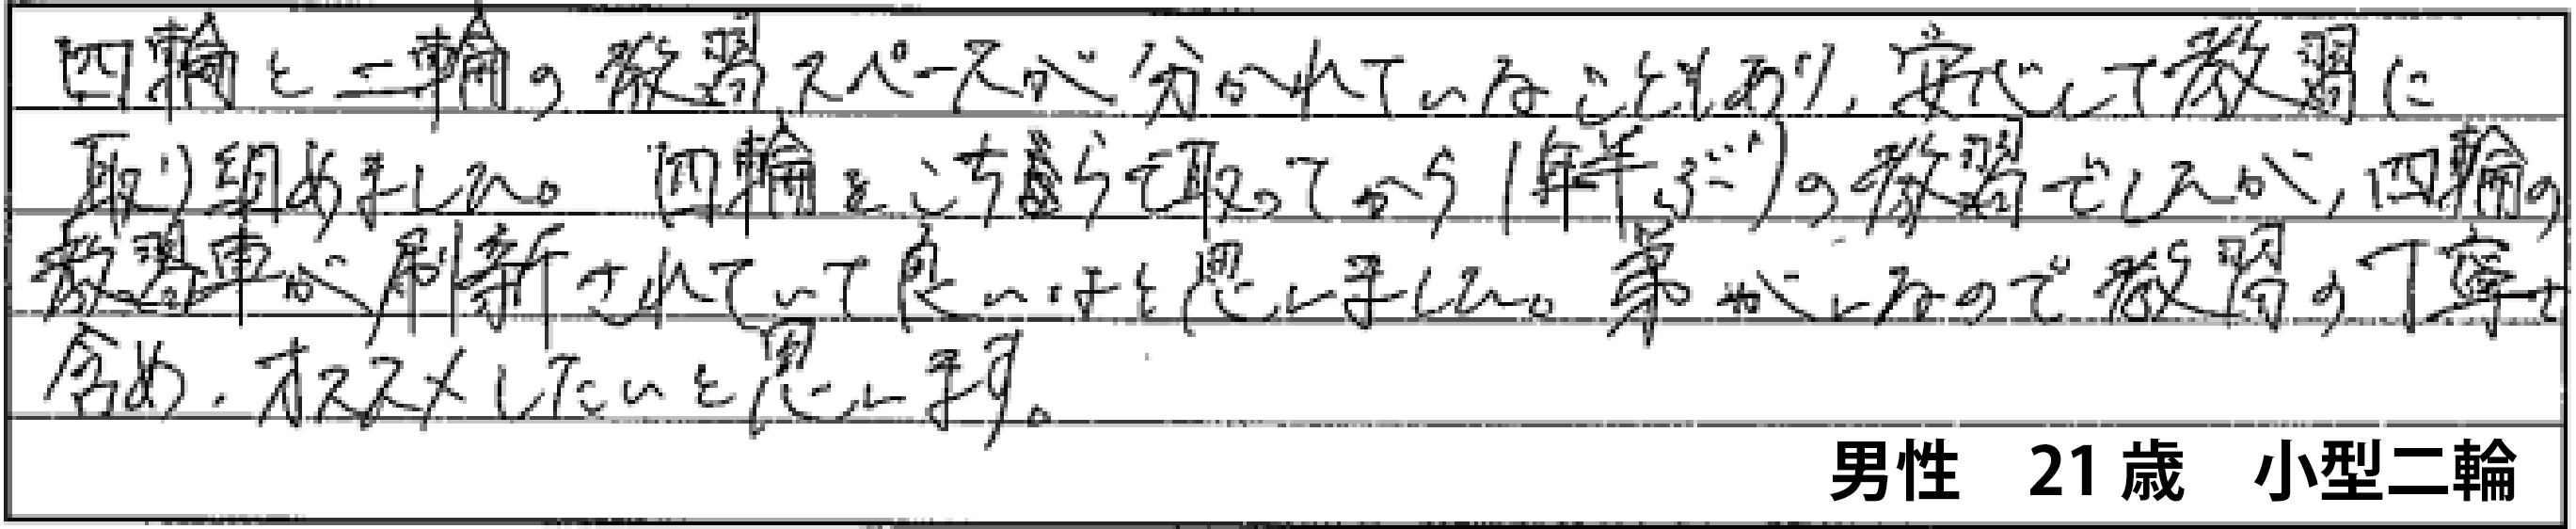 四輪と二輪の教習スペースが分かれていることもあり、安心して教習に
取り組めました。四輪をこちらで取ってから1年半ぶりの教習でしたが、四輪の
教習車が刷新されていて良いなと思いました。弟がいるので教習の丁寧さ
含め、オススメしたいと思います。
男性 21歳 小型二輪